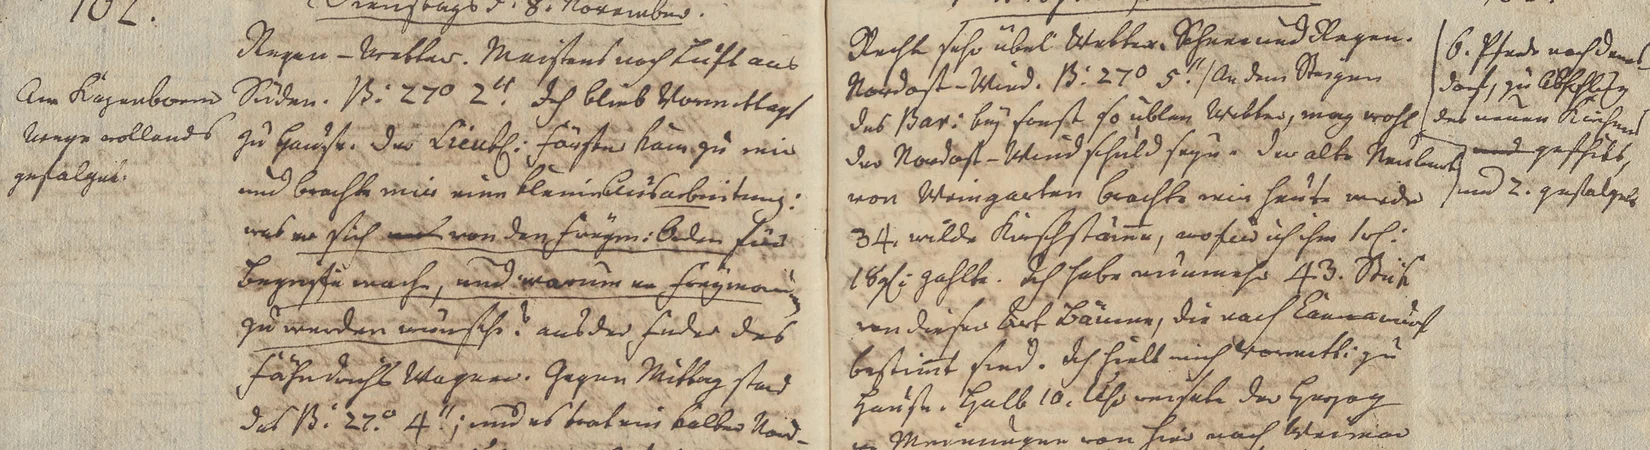 102.
Dienstags d. 8. November.
Regen-Wetter. Meistens noch Luft aus
Süden. B: 27° 2". Ich blieb Vormittags
zu Hause. Der Lieut: Förster kam zu mir
und brachte mir eine kleine Ausarbeitung:
was er sich von den Freym: Orden für
Begriffe mache, und warum er Freymaurer
zu werden wünsche? aus der Feder des
Fähndrichs Wagner. Gegen Mittag stand
das B: 27.° 4"; und es trat ein kalter Nord-
Am
Wege vollends
Recht sehr übel Wetter. Schnee und Regen.
Nordost-Wind. B: 27° 5". (An dem Steigen
des Bar: bey sonst so üblen Wetter, mag wohl
der Nordost-Wind schuld seyn. Der alte
von Weingarten brachte mir heute wieder
34. wilde Kirschstämme, wofür ich ihm 1 rh:
18 gl: zahlte. Ich habe nunmehr 43. Stück
von dieser Art Bäume, die nach
bestimmt sind. Ich hielt mich Vormitt: zu
Hause. Halb 10. Uhr reisete der Herzog
v. Meiningen von hier nach Weimar
6. Pferde nach
dorf, zu Abholung
der neuen
und geschickt,
und 2.